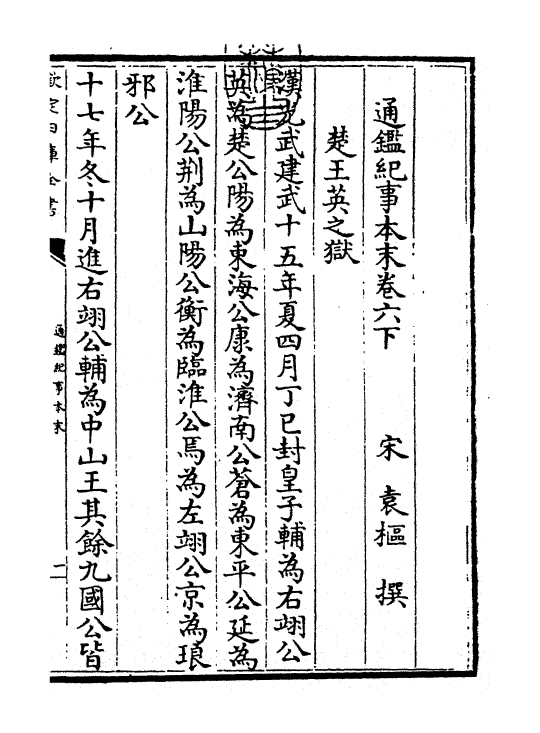 通鑑紀事本末卷六下　宋　袁樞　撰
楚王英之獄
漢光武建武十五年夏四月丁巳封皇子輔為右翊公
英為楚公陽為東海公康為濟南公蒼為東平公延為
淮陽公荆為山陽公衡為臨淮公焉為左翊公京為琅
邪公
十七年冬十月進右翊公輔為中山王其餘九國公皆
欽定四庫全書
通鑑紀事本末